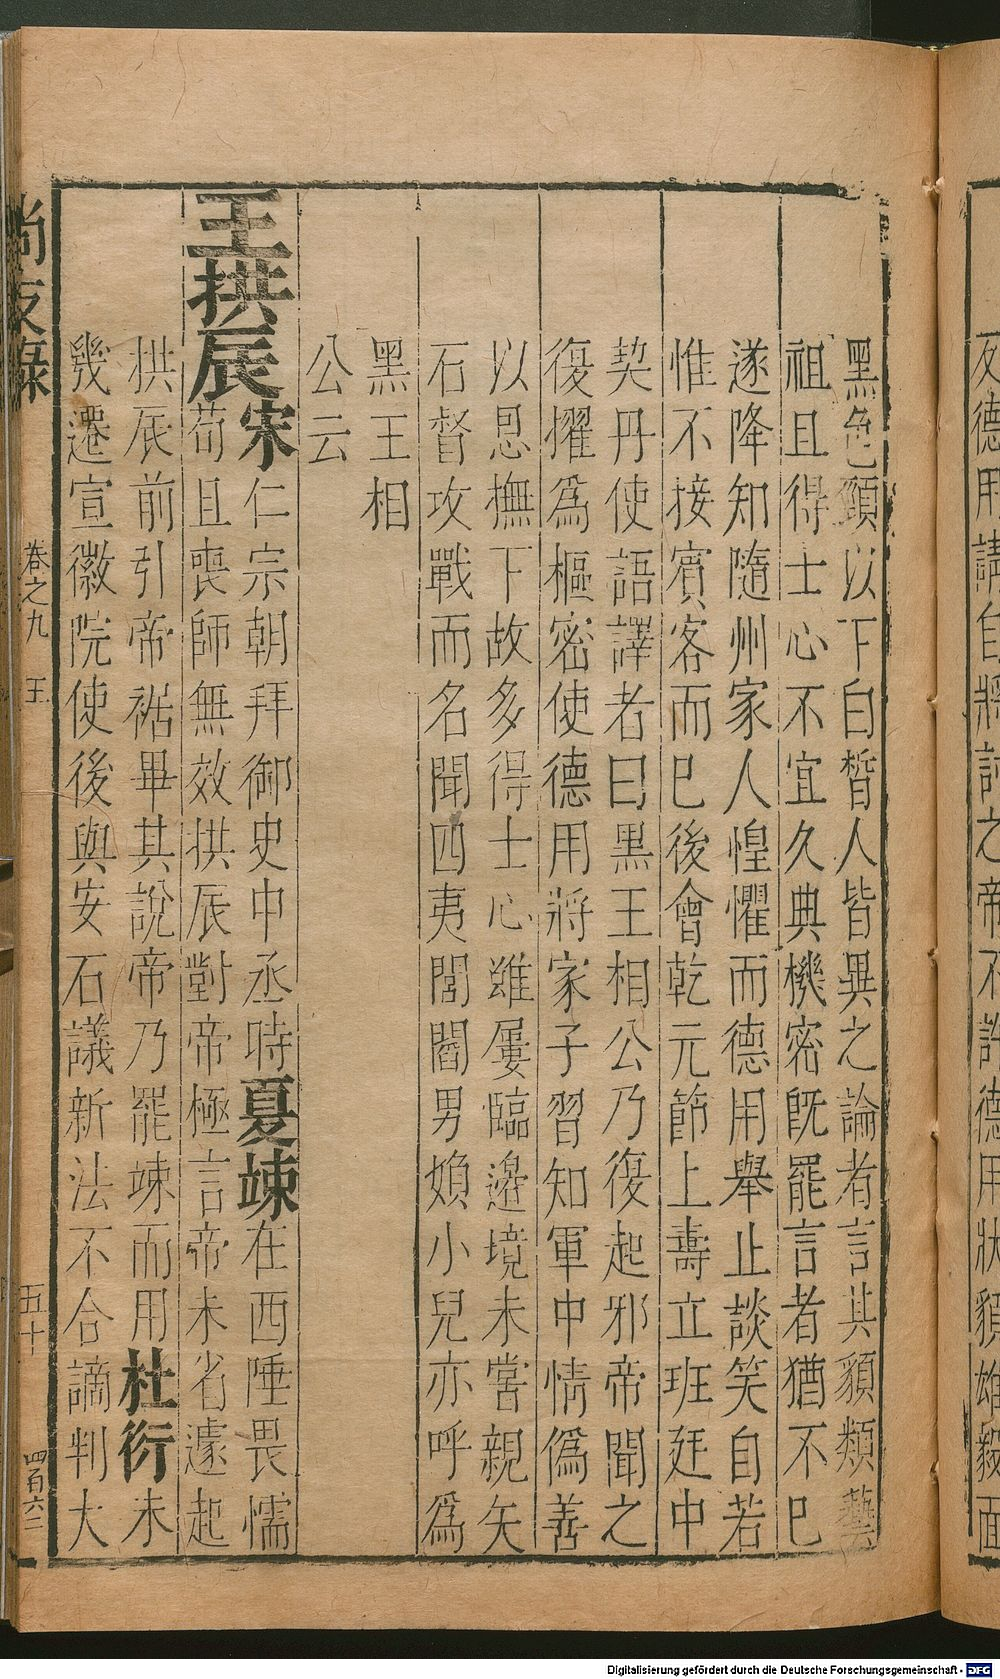 反德用請自將討之帝不許德用狀貌雄毅面
黑色頸以下白皙人皆異之論者言其貌類藝
祖且得士心不宜久典機密旣罷言者猶不已
遂降知隨州家人惶懼而德用舉止談笑自若
惟不接賓客而已後會乾元節上壽立班廷中
契丹使語譯者曰黑王相公乃復起邪帝聞之
復擢爲樞密使德用將家子習知軍中情僞善
以恩撫下故多得士心雖屢臨邊境未嘗親矢
石督攻戰而名聞四夷閭閻男婦小兒亦呼爲
黑王相
公云
王拱辰宋仁宗朝拜御史中丞時夏竦在西陲畏懦
苟且喪師無效拱辰對帝極言帝未省遽起
拱辰前引帝裾畢其說帝乃罷竦而用杜衍未
幾遷宣徽院使後與安石議新法不合謫判大
尚友錄 卷之九 王 五十 四百六二
Digitalisierung gefördert durch die Deutsche Forschungsgemeinschaft - DFG